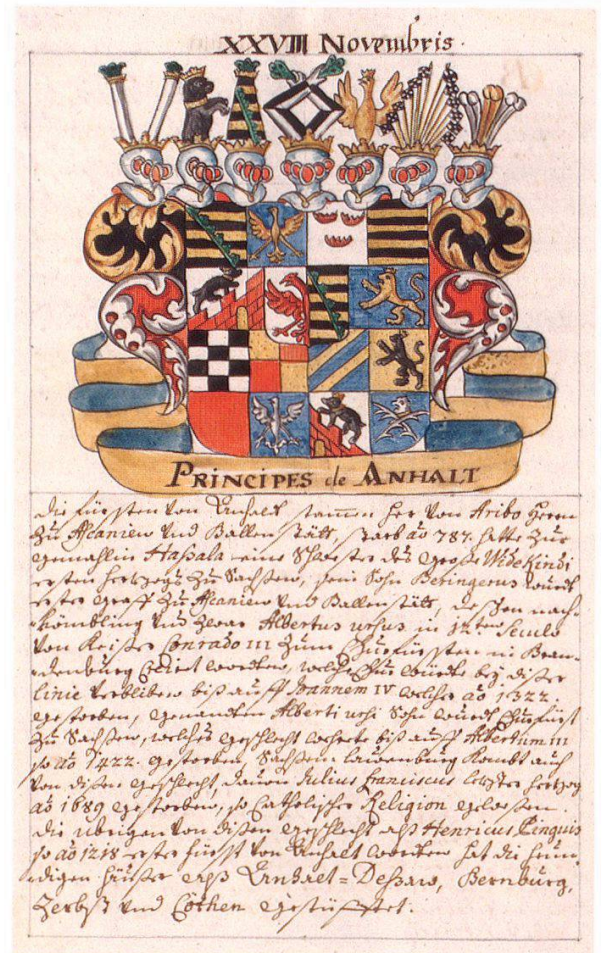 XXVIII Novembris.
PRINCIPES de ANHALT
die fürsten von Anhalt stamen her von Aribo Herrn
zu Ascanien und Ballenstätt, starb aõ 787. hatte zur
gemahlin Hassala eine Schwester des große Widekindi
ersten herzogs zu Sachsen, sein Sohn Beringerus wurde
erster graff zu Ascanien und Ballenstätt, dessen nach-
kömbling und zwar Albertus ursus in 12.ten Seculo
von Keißer Conrado III zum Churfürsten in Bran-
denburg worden, welche Chur würde bey diser
linie verbliben biß auff Ioannem IV welcher aõ 1322.
gestorben, genandten Alberti ursi Sohn wurde Churfürst
zu Sachsen, welches geschlecht biß auff Albertum III
so aõ 1422. gestorben, Sachsen lauenburg kombt auch
von disen geschlecht, davon Iulius franciscus letzter herzog
aõ 1689 gestorben, so Catholischer Religion gewesen.
die ubrigen von disen geschlecht alß Henricus Pinguis
so aõ 1218 erster fürst von Anhalt worden hat die heun-
digen häußer alß Anhalt=Dessaw, Bernburg,
Zerbst und Cöthen gestüfftet.